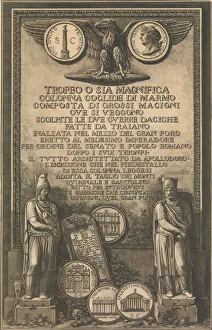 TROFEO O SIA MAGNIFICA
COLONNA COCLIDE DI MARMO
COMPOSTA DI GROSSI MACIGNI
OVE SI VEGGONO
SCOLPITE LE DUE GUERRE DACICHE
FATTE DA TRAIANO
INALZATA NEL MEZZO DEL GRAN FORO
ERETTO AL MEDESIMO IMPERADORE
PER ORDINE DEL SENATO E POPOLO ROMANO
DOPPO I SUOI TRIONFI
IL TUTTO ARCHITETTATO DA APOLLODORO
L'ISCRIZIONE CHE NEL PIEDESTALLO
DI ESSA COLONNA LEGGESI
ADDITA IL TAGLIO DEI MONTI
QUIRINALE E CAPITOLINO